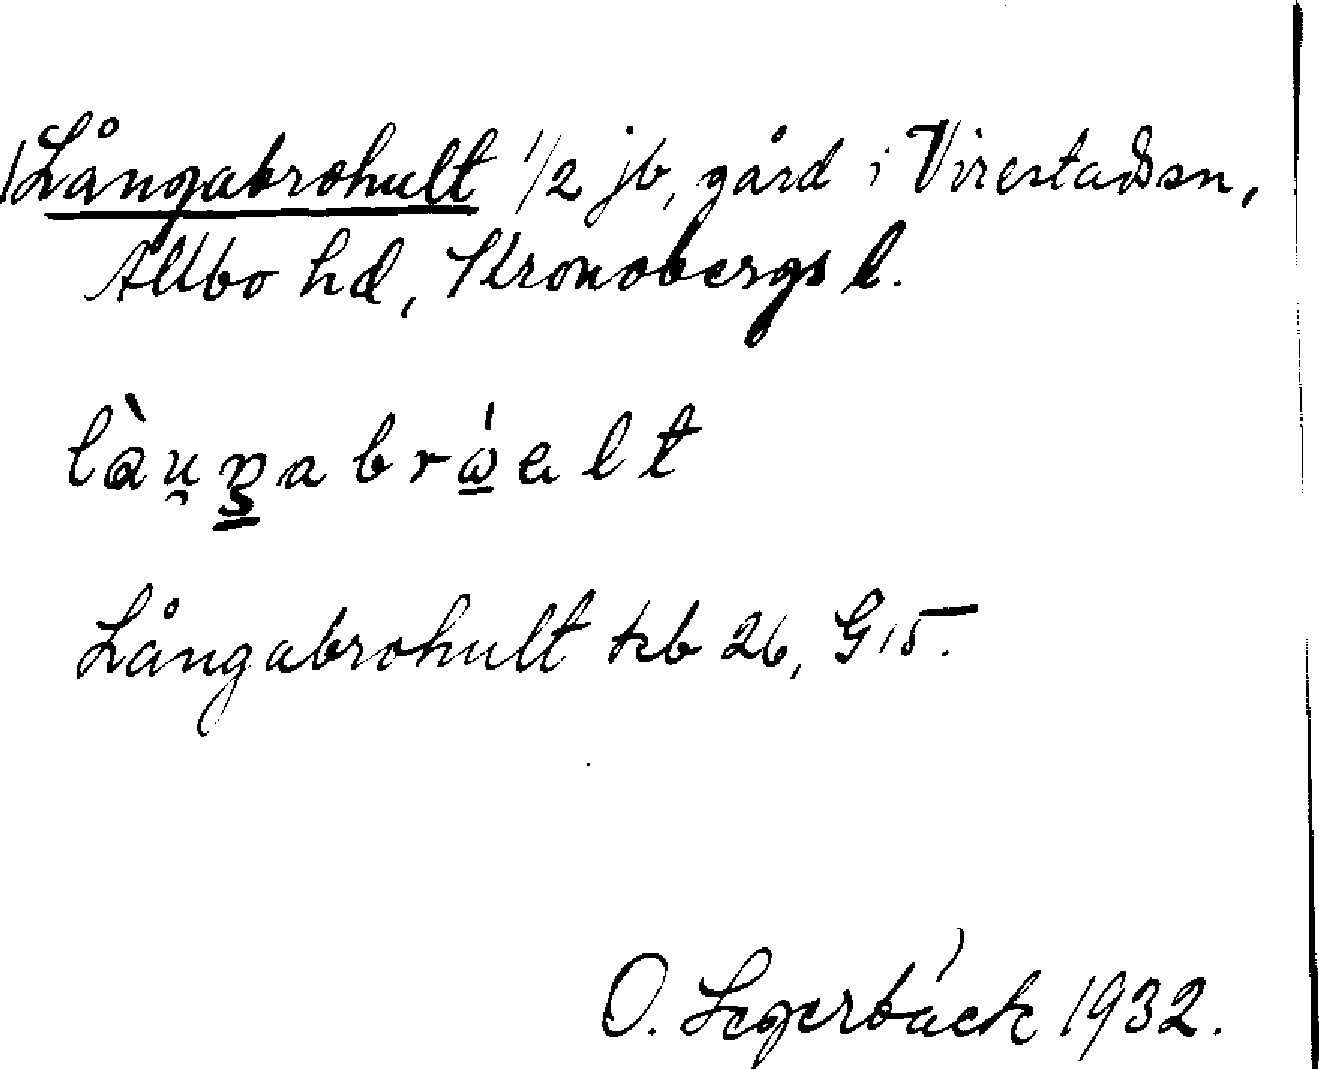 Långabrohult 1/2 jb, gård i Virestads sn,
Allbo hd, Kronobergs l.
Långabrohult kb 26, G 15.
O. Segerbäck 1932.